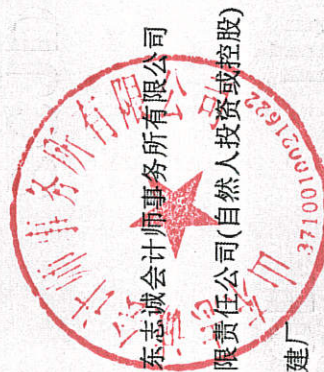 东志诚会计师事务所有限公司
限责任公司(自然人投资或控股)
建厂
3710010021622